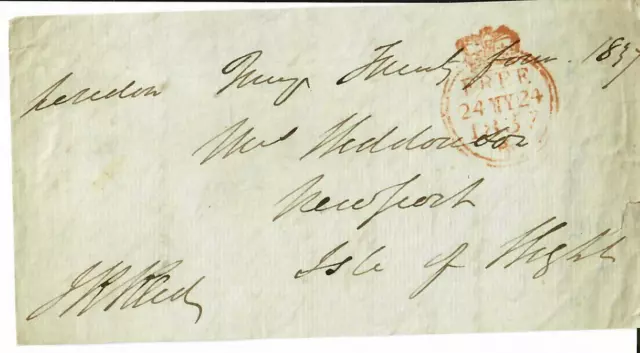 London May Twenty four 1837
FREE
24 MY 24
1837
Mrs
Newport
Isle of Wight